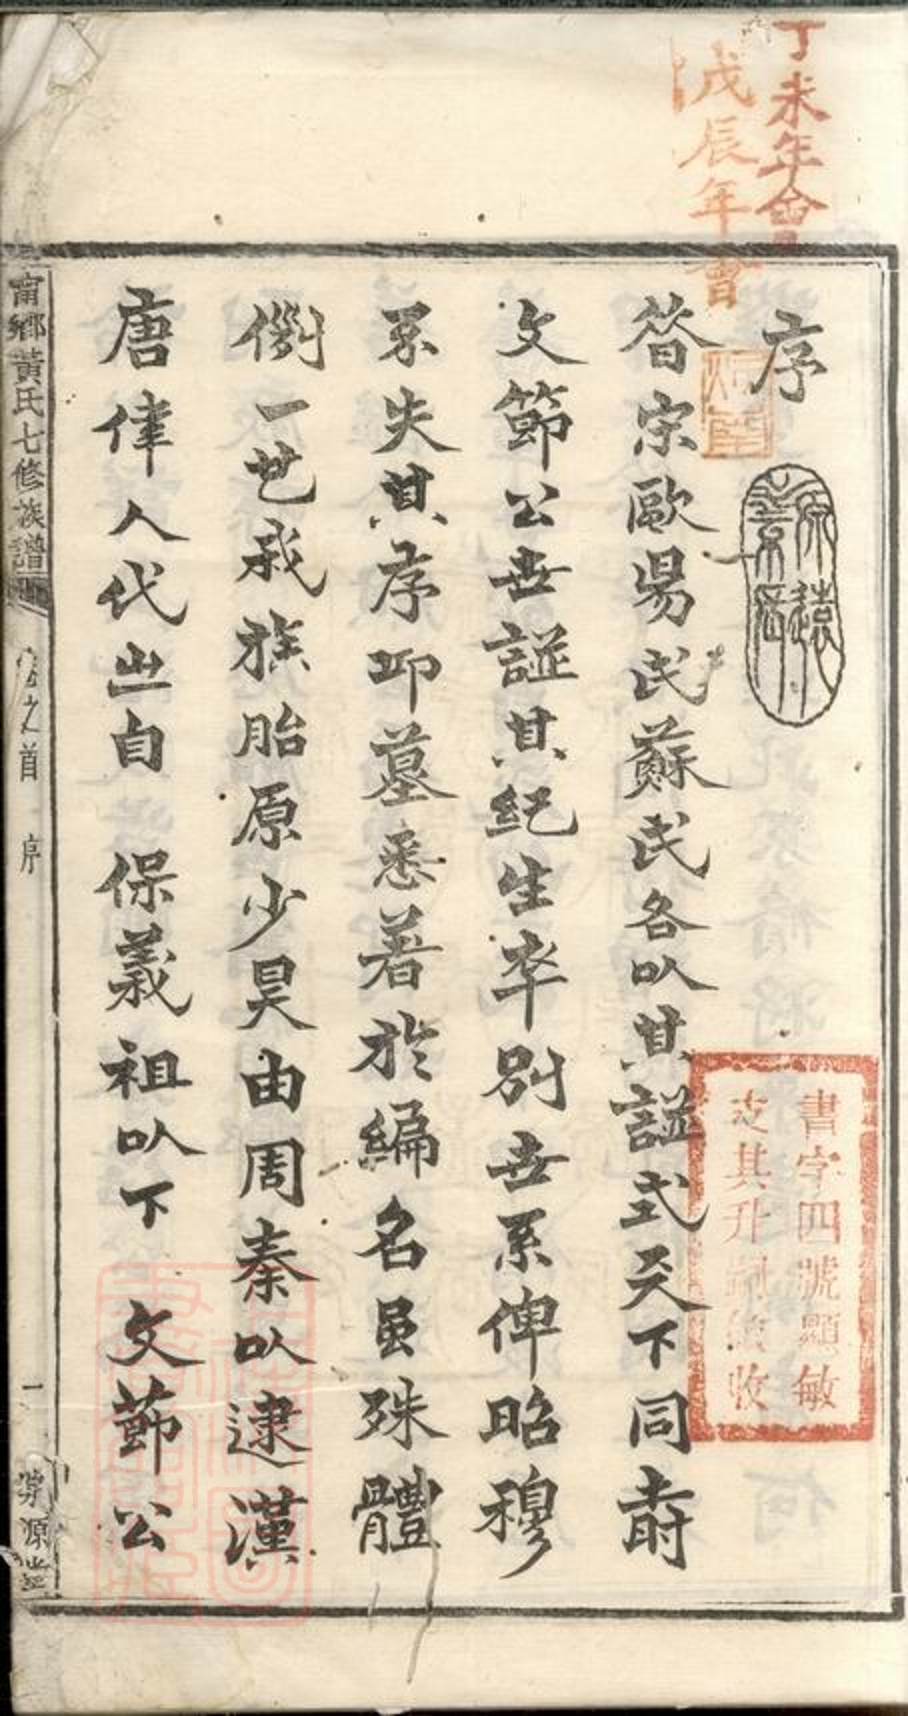 丁未年會
戊辰年會
序
源遠
昝宗歐昜氏蘇氏各㕥其諡式天下同旹
文節公世諡其紀生卒別世系俾昭穆
不失其序卭墓悉著於編名虽殊體
例一世我族胎原少昊由周秦㕥逮漢
唐偉人代出自 保義祖㕥下 文節公
書字四號顯敏
支其升 收
甯鄉黃氏七修族譜
卷之首 序
一